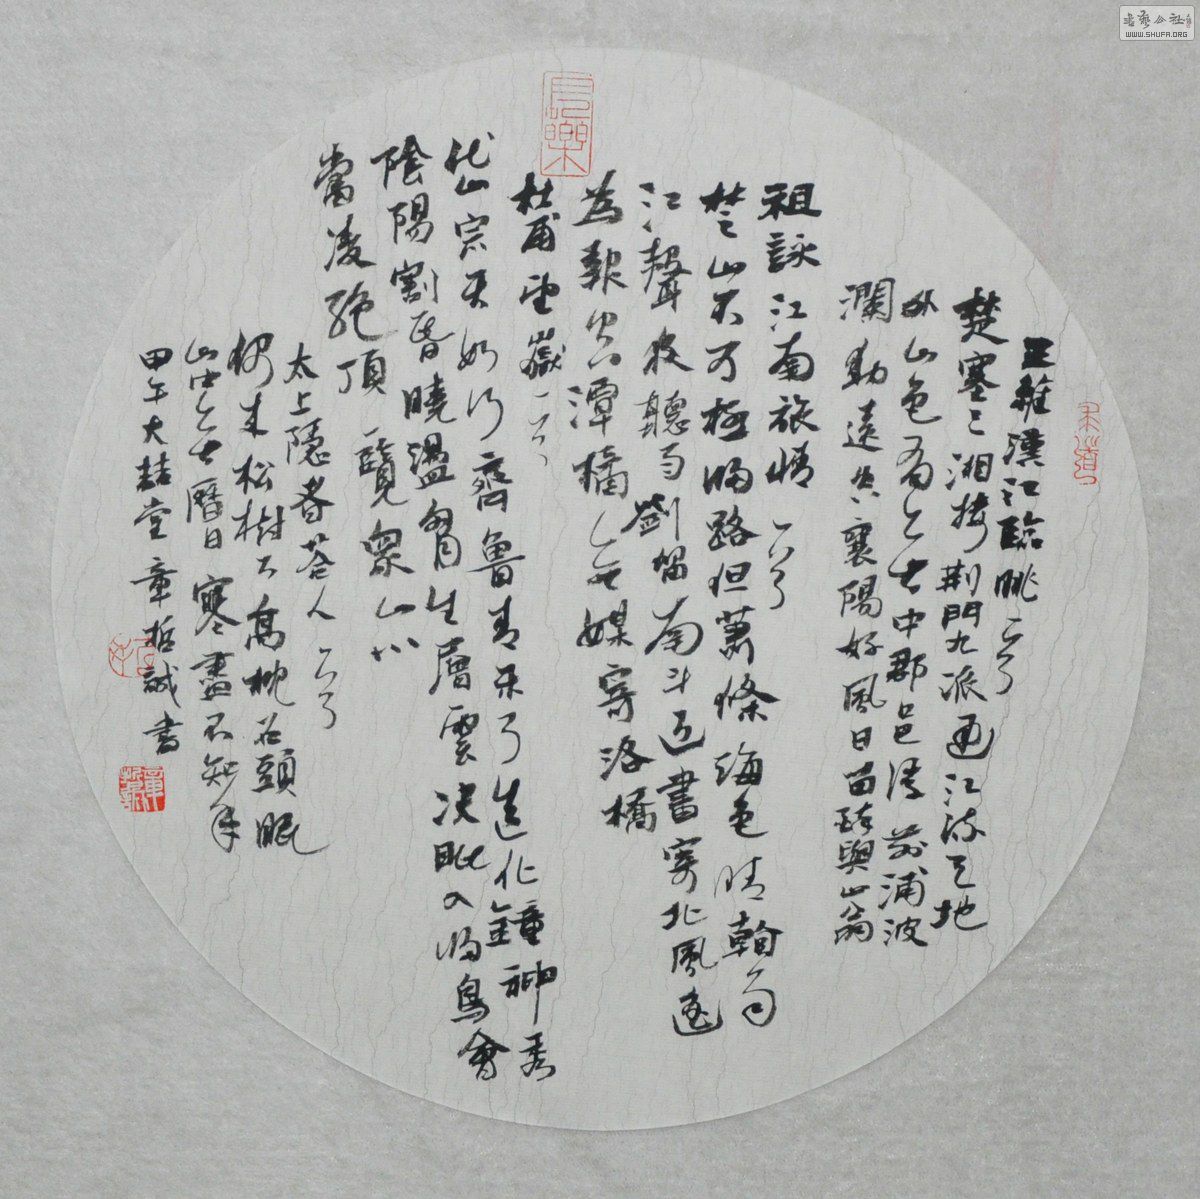 王維漢江臨眺一首
楚塞三湘接荆門九派通江流天地
外山色有無中郡邑浮前浦波
瀾動遠空襄陽好風日留醉與山翁
祖詠江南旅情一首
楚山不可極歸路但蕭條海色晴雨
江聲夜聽劍留南斗近書寄北風遥
為報空潭橘無媒寄洛橋
杜甫望嶽一首
岱宗夫如何齊魯青未了造化鍾神秀
陰陽割昏曉盪胸生層雲決眦入歸鳥會
當凌絕頂一覽衆山小
太上隱者答人一首
偶來松樹下高枕石頭眠
山中無曆日寒盡不知年
甲午大喆堂章哲誠書
長樂
书艺公社
WWW.SHUFA.ORG